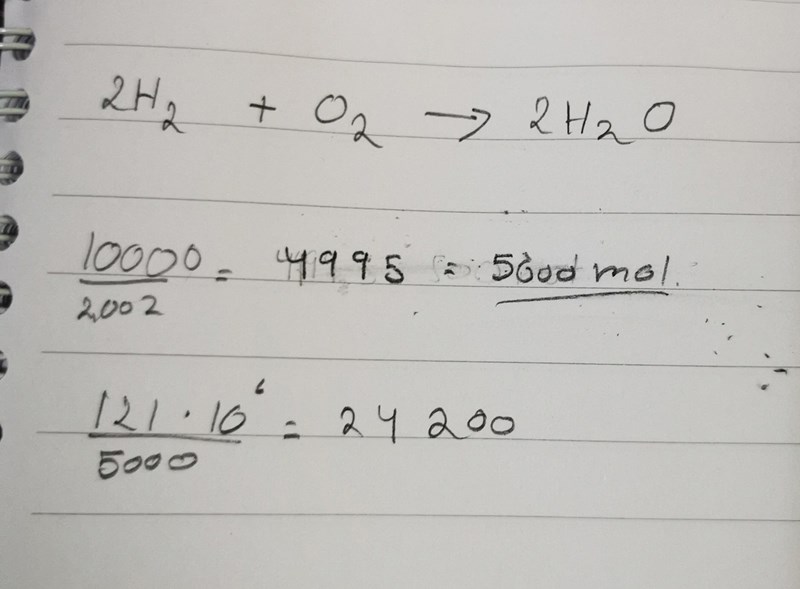 2H₂ + O₂ → 2H₂O
10000 / 2,002 = 4995 = 5000 mol.
121 · 10⁶ / 5000 = 24 200